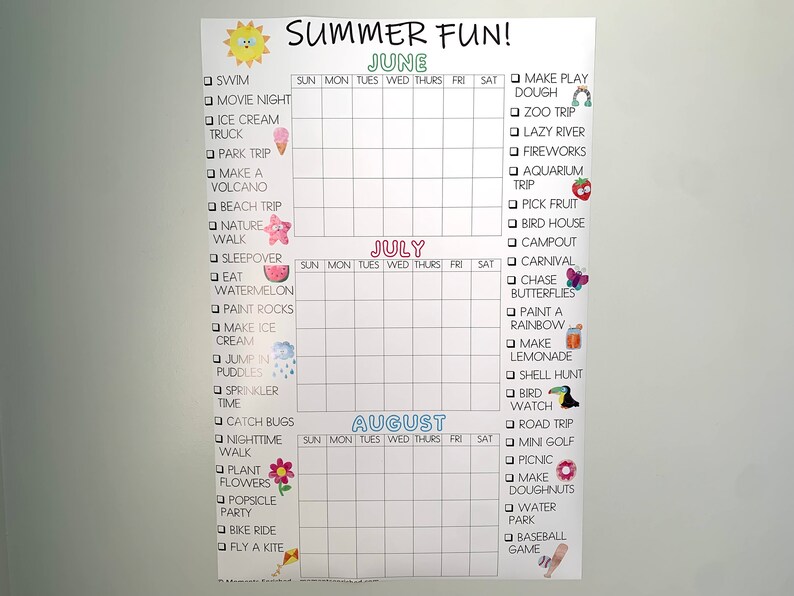 SUMMER FUN!
JUNE
SUN MON TUES WED THURS FRI SAT
JULY
SUN MON TUES WED THURS FRI SAT
AUGUST
SUN MON TUES WED THURS FRI SAT
SWIM
MOVIE NIGHT
ICE CREAM
TRUCK
PARK TRIP
MAKE A
VOLCANO
BEACH TRIP
NATURE
WALK
SLEEPOVER
EAT
WATERMELON
PAINT ROCKS
MAKE ICE
CREAM
JUMP IN
PUDDLES
SPRINKLER
TIME
CATCH BUGS
NIGHTTIME
WALK
PLANT
FLOWERS
POPSICLE
PARTY
BIKE RIDE
FLY A KITE
MAKE PLAY
DOUGH
ZOO TRIP
LAZY RIVER
FIREWORKS
AQUARIUM
TRIP
PICK FRUIT
BIRD HOUSE
CAMPOUT
CARNIVAL
CHASE
BUTTERFLIES
PAINT A
RAINBOW
MAKE
LEMONADE
SHELL HUNT
BIRD
WATCH
ROAD TRIP
MINI GOLF
PICNIC
MAKE
DOUGHNUTS
WATER
PARK
BASEBALL
GAME
© Moments Enriched momentsenriched.com